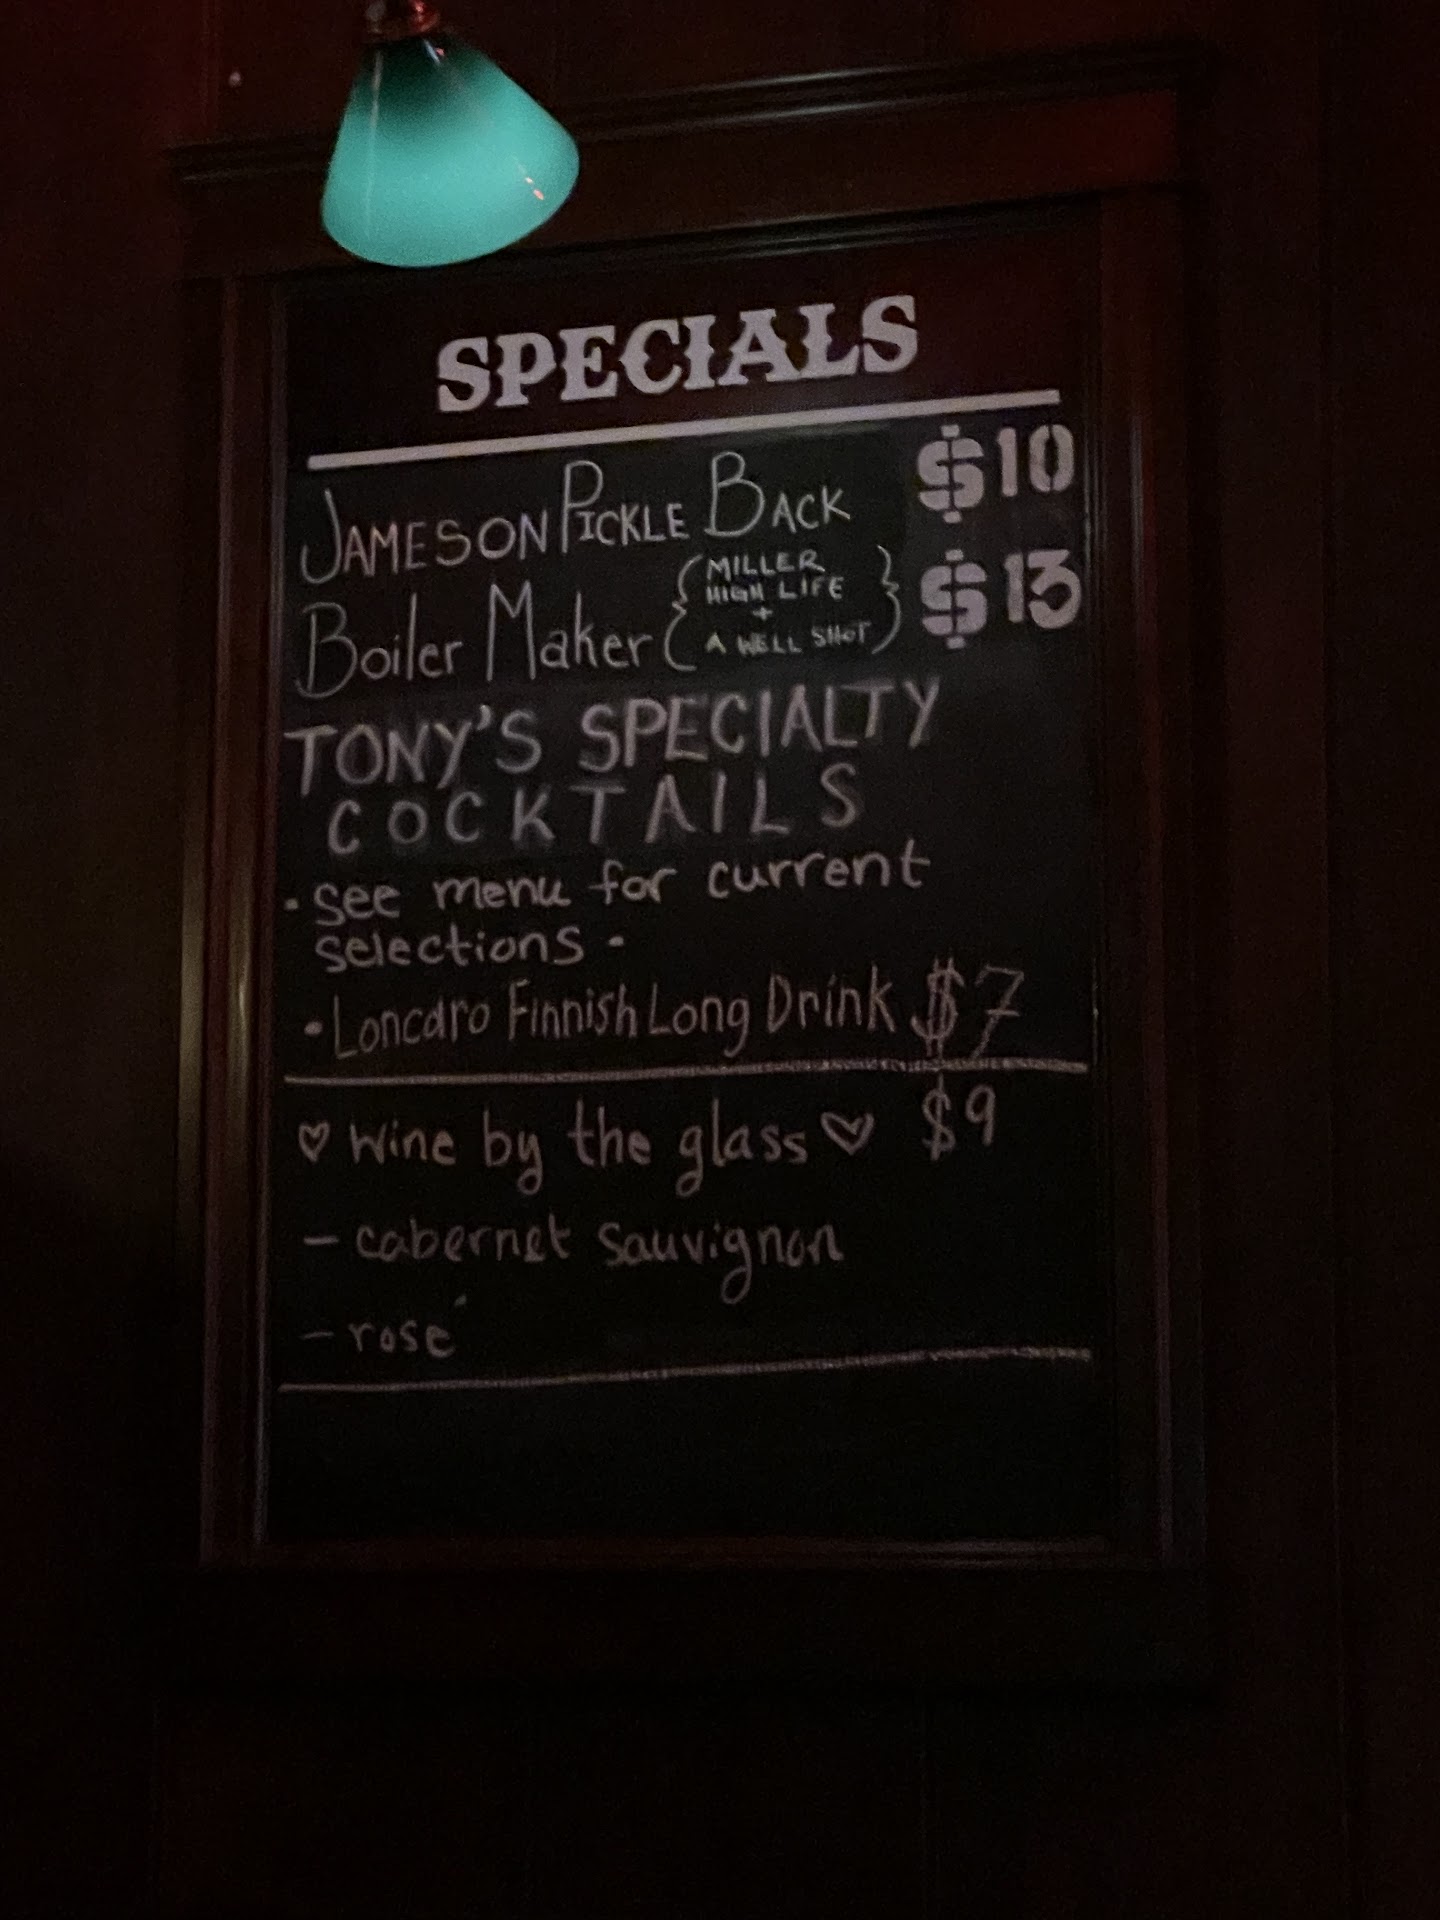 SPECIALS
JAMESON PICKLE BACK $10
Boiler Maker { MILLER HIGH LIFE + A WELL SHOT } $13
TONY'S SPECIALTY
COCKTAILS
• see menu for current
selections •
• Loncaro Finnish Long Drink $7
♡ wine by the glass ♡ $9
– cabernet sauvignon
– rosé